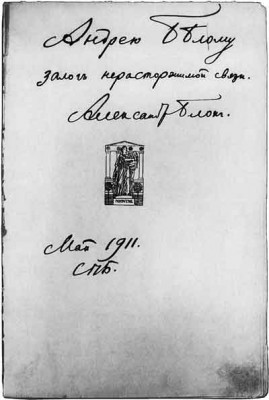 Андрею Бѣлому
залогъ нерасторжимой связи.
Александръ Блокъ.
Май 1911.
СПБ.